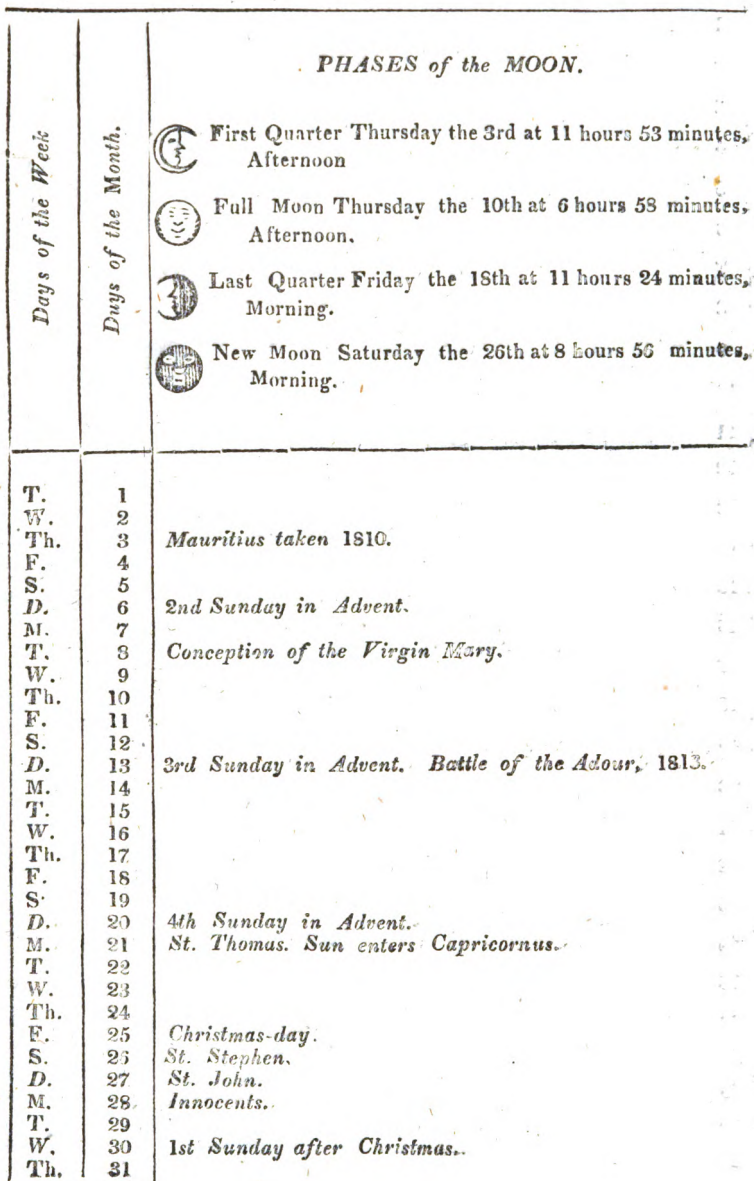 Days of the Week
Duys of the Month.
PHASES of the MOON.
First Quarter Thursday the 3rd at 11 hours 53 minutes,
Afternoon
Full Moon Thursday the 10th at 6 hours 58 minutes,
Afternoon.
Last Quarter Friday the 18th at 11 hours 24 minutes,
Morning.
New Moon Saturday the 26th at 8 hours 56 minutes,
Morning.
T. 1
W. 2
Th. 3 Mauritius taken 1810.
F. 4
S. 5
D. 6 2nd Sunday in Advent.
M. 7
T. 8 Conception of the Virgin Mary.
W. 9
Th. 10
F. 11
S. 12
D. 13 3rd Sunday in Advent. Battle of the Adour, 1813.
M. 14
T. 15
W. 16
Th. 17
F. 18
S. 19
D. 20 4th Sunday in Advent.
M. 21 St. Thomas. Sun enters Capricornus.
T. 22
W. 23
Th. 24
F. 25 Christmas-day.
S. 26 St. Stephen.
D. 27 St. John.
M. 28 Innocents.
T. 29
W. 30 1st Sunday after Christmas.
Th. 31